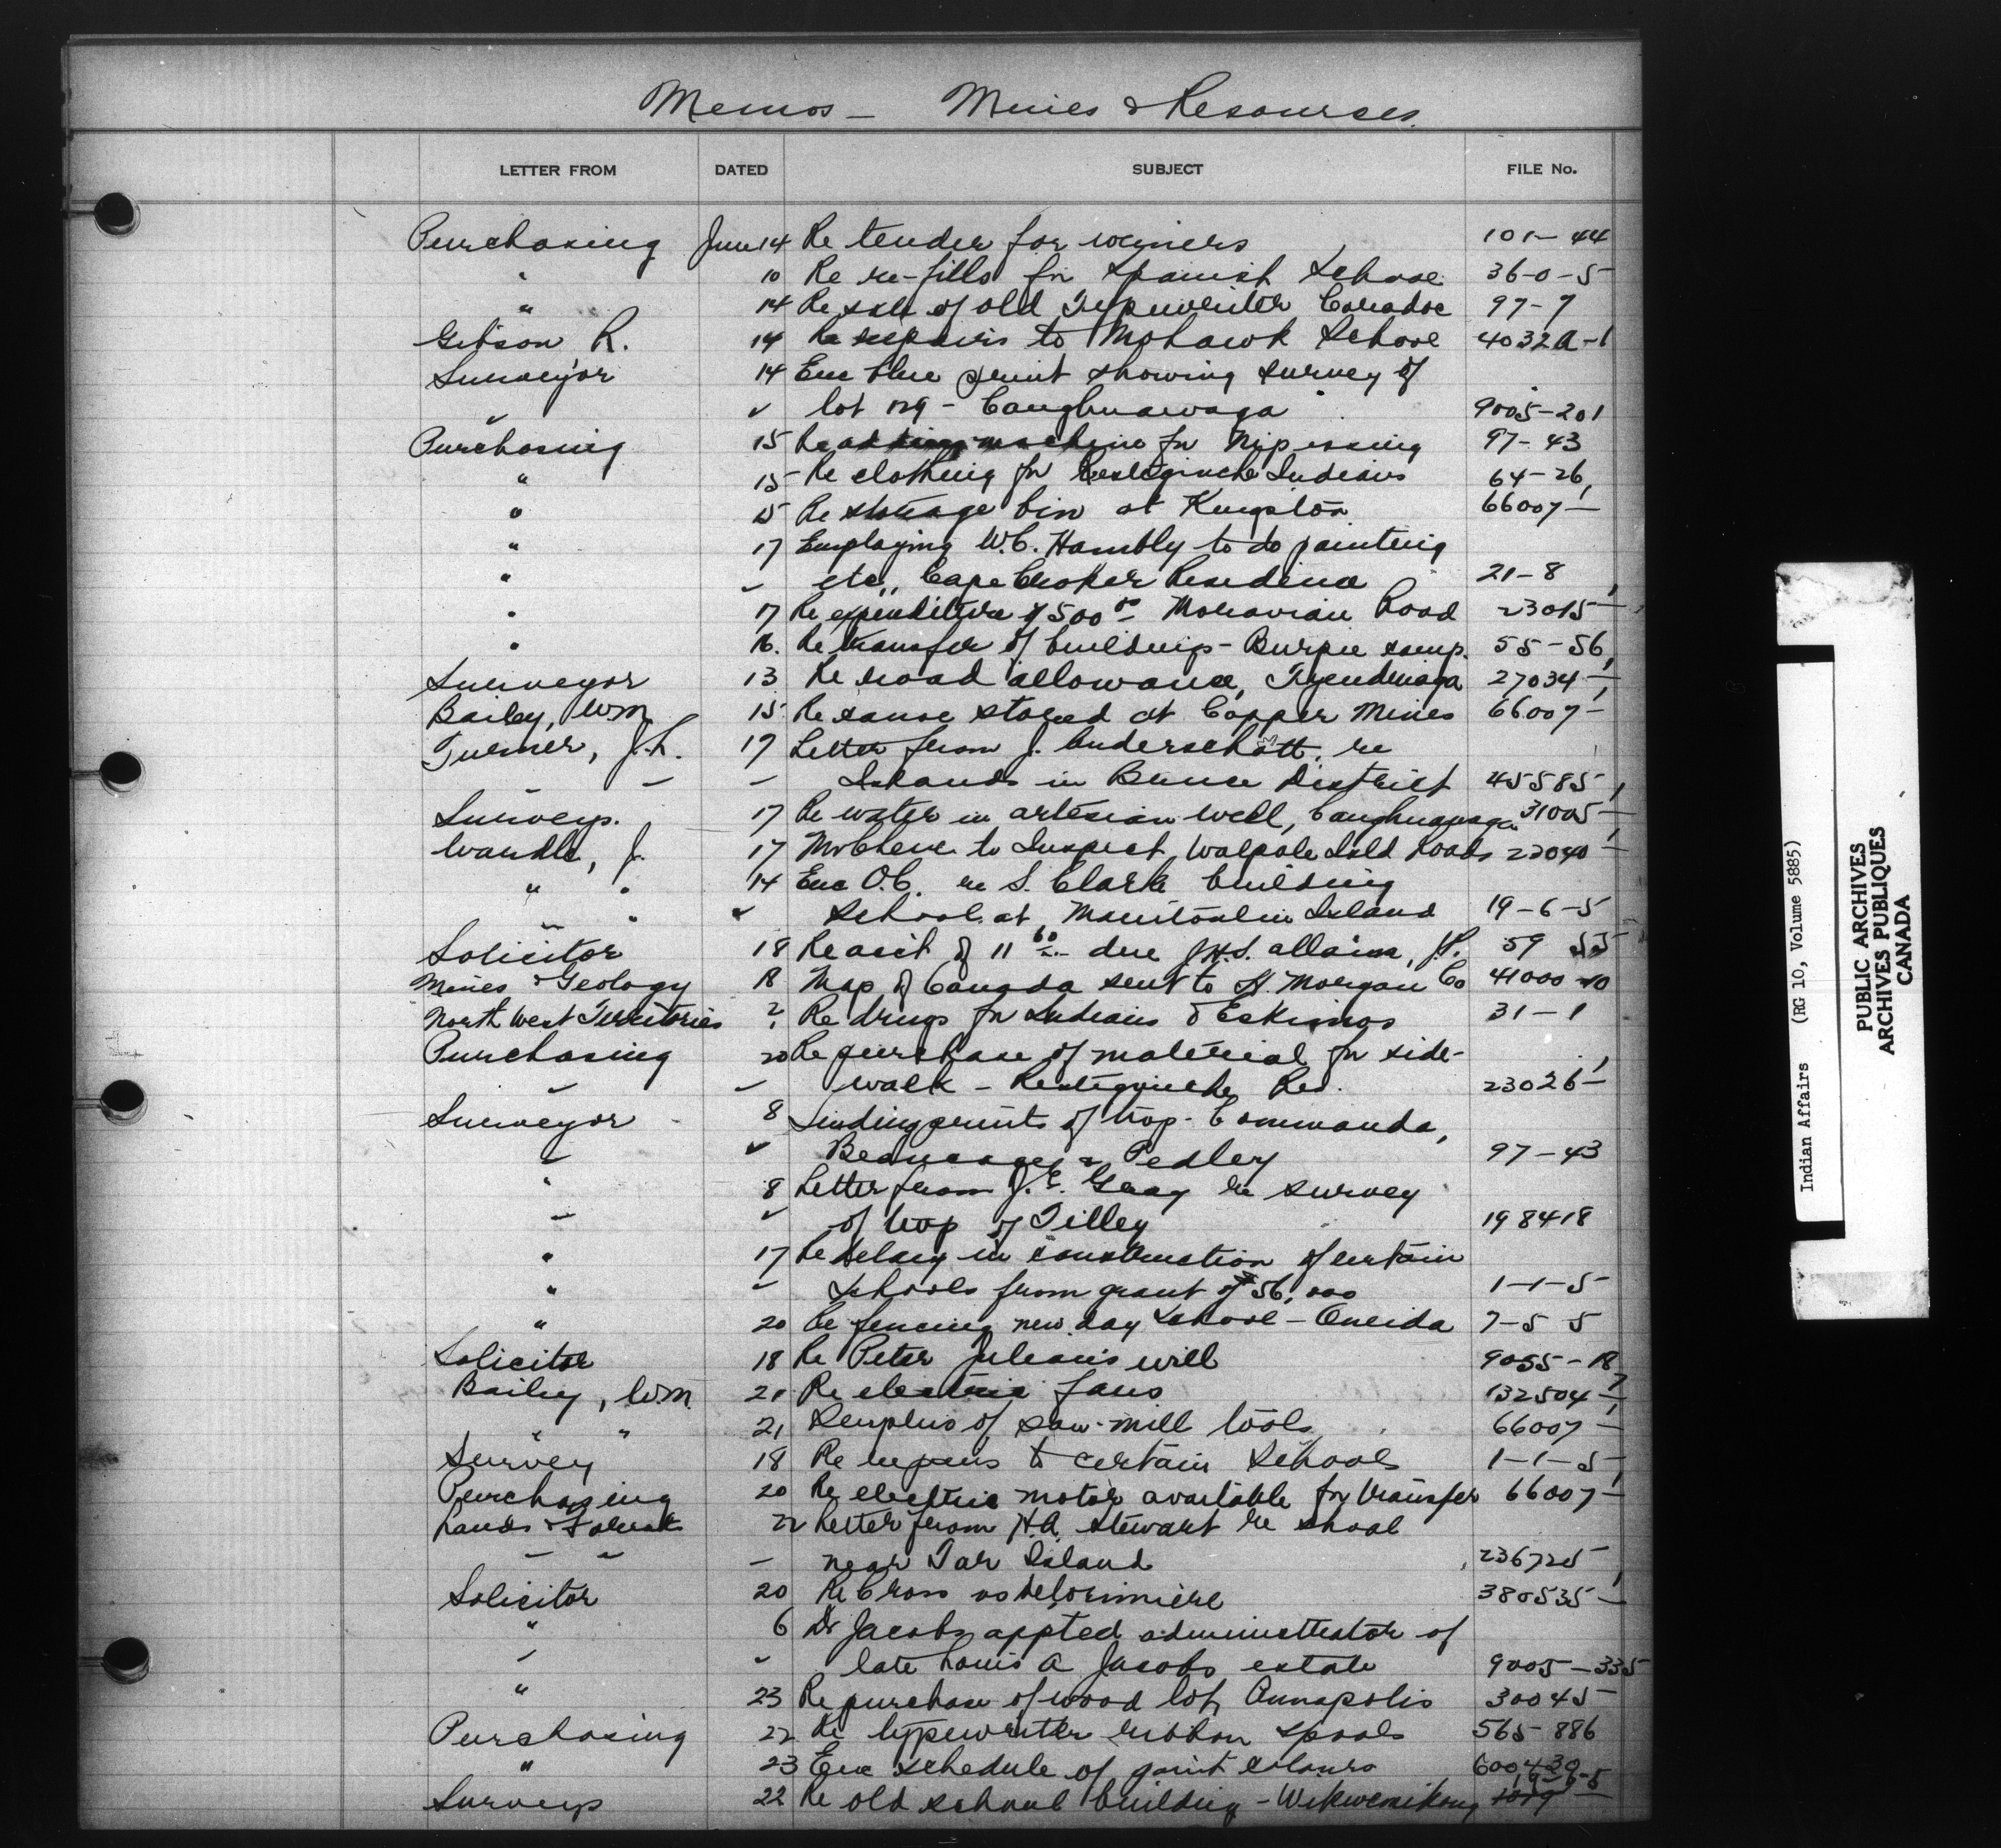 Memos — Mines & Resourses.
LETTER FROM DATED SUBJECT FILE No.
Purchasing June 14 Re tender for wringers 101-44
" 10 Re re-fills for Spanish School 36-0-5
" 14 Re sale of old Typewriter Caradoc 97-7
Gibson R. 14 Re repairs to Mohawk School 4032A-1
Surveyor 14 Enc blue print showing survey of
" ✓ lot 129 - Caughnawaga 9005-201
Purchasing 15 Re adding machine for Nipissing 97-43
" 15 Re clothing for Restigouche Indians 64-26
" 15 Re storage bin at Kingston 66007-
" 17 Employing W.C. Hambly to do painting
" - etc., Cape Croker Residence 21-8
" 17 Re expenditure of 500 00 Moravian Road 23015-
" 16. Re transfer of buildings - Burpee camp. 55-56
Surveyor 13 Re road allowance, Tyendinaga 27034-
Bailey, Wm 15 Re canoe stored at Copper Mines 66007-
Turner, J.L. 17 Letter from J. Anderschatt re
" - - Islands in Bruce District 45585
Surveys. 17 Re water in artesian well, Caughnawaga 31005-
Wardle, J. 17 to Inspect Walpole Isld Roads 23040-
" " 14 Enc O.C. re S. Clark building
" " ✓ School at Manitoulin Island 19-6-5
Solicitor 18 Re acct of 11 60 due J.H.S. allaim, J.P. 59 55
Mines & Geology 18 Map of Canada sent to H. Morgan Co 41000-10
North West Territories ? Re drugs for Indians & Eskimos 31-1
Purchasing 20 Re purchase of material for side-
" - walk - Restigouche Res. 23026-
Surveyor 8 Sending prints of trop - Commanda,
" ✓ Beaucage & Pedley 97-43
" 8 Letter from J.E. Gray re survey
" ✓ of twp of Tilley 198418
" 17 Re delay in construction of certain
" - Schools from grant of $56,000 1-1-5
" 20 Re fencing new day School - Oneida 7-5 5
Solicitor 18 Re Peter Julian's will 9055-18
Bailey, Wm. 21 Re electric fans 132504-7
" " 21 Surplus of saw-mill tools 66007-
Survey 18 Re repairs to certain Schools 1-1-5
Purchasing 20 Re electric motor available for transfer 66007-
Lands & Forests 22 Letter from H.A. Stewart re shoal
" " - near Tar Island 236725
Solicitor 20 Re Cross vs Delorimiere 380535-
" 6 Dr Jacobs appted administrator of
" - late Louis A Jacobs estate 9005-335
" 23 Re purchase of wood lot, Annapolis 30045-
Purchasing 22 Re typewriter ribbon spools 565-886
" 23 Enc schedule of paint colours 600430
Surveys 22 Re old school building - Wikwemikong 19-9-5
Indian Affairs (RG 10, Volume 5885)
PUBLIC ARCHIVES
ARCHIVES PUBLIQUES
CANADA